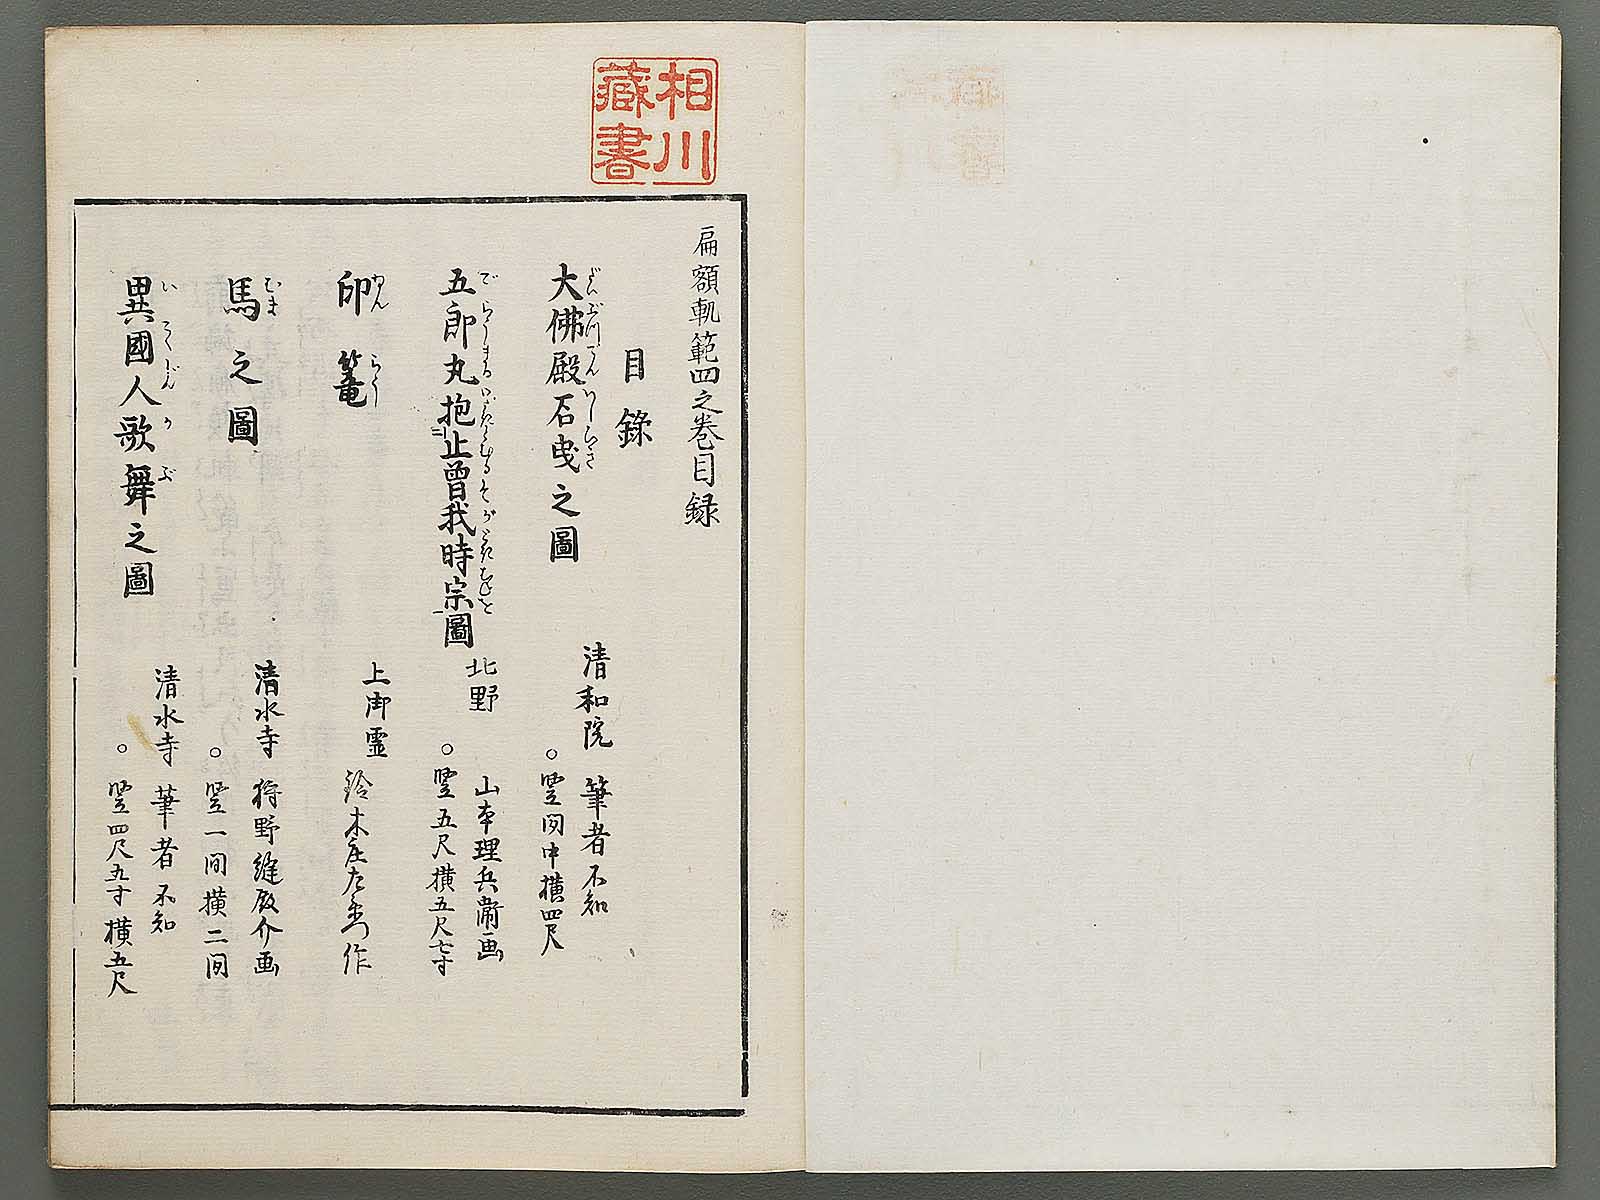 相川
藏書
扁額軌範四之巻目録
目錄
大佛殿石曳之圖
清和院 筆者不知
○竪間中横四尺
五郎丸抱止曽我時宗圖
北野 山本理兵衛画
○竪五尺横五尺七寸
印篭
いん らう
上御霊 鈴木庄左衛門作
馬之圖
むま
清水寺 狩野縫殿介画
○竪一間横二間
異國人歌舞之圖
いこくじんかぶ
清水寺 筆者不知
○竪四尺九寸横五尺